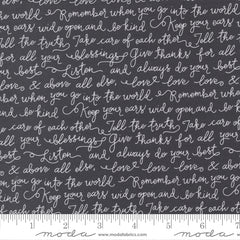 Remember when you go into the world
Keep your ears wide open, and be kind
Tell the truth Take care of each other
for all your blessings Give thanks for all your
your best Listen and always do your best
love & above all else, love Love
Remember when you go into the world
Keep your ears wide open, and be kind
care of each other Tell the truth Take care
all your blessings Give thanks for all your
Listen and always do your best
& above all else, love Love
you go into the world Remember when you go
wide open, and be kind Keep your ears
Take care of each other Tell the truth
1 2 3 4 5 6 7
moda www.modafabrics.com moda